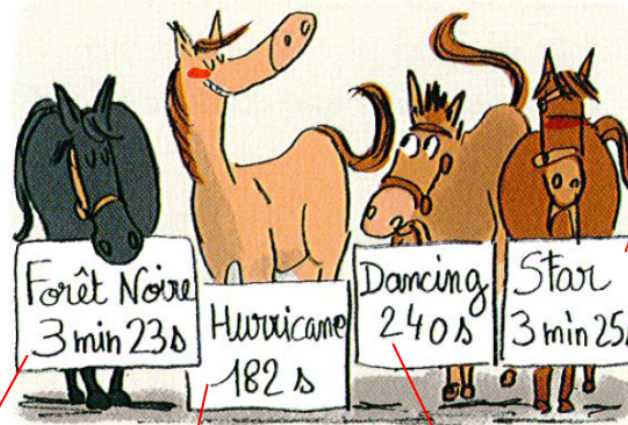 Forêt Noire
3 min 23s
Hurricane
182 s
Dancing
240 s
Star
3 min 25s